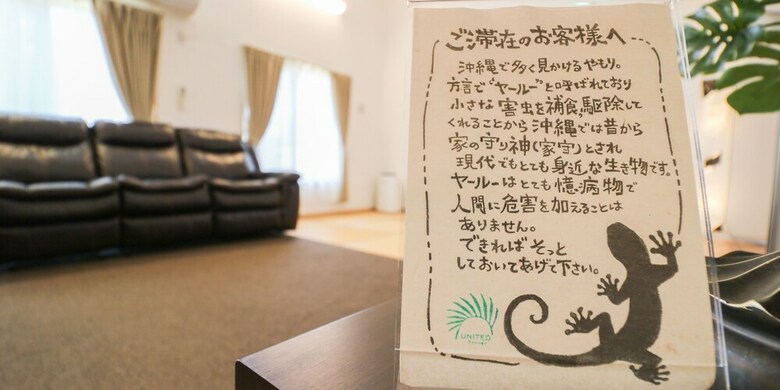 ご滞在のお客様へ
沖縄で多く見かけるやもり。
方言で"ヤールー"と呼ばれており
小さな害虫を補食,駆除して
くれることから沖縄では昔から
家の守り神(家守)とされ
現代でもとても身近な生き物です。
ヤールーはとても憶病物で
人間に危害を加えることは
ありません。
できればそっと
しておいてあげて下さい。
UNITED